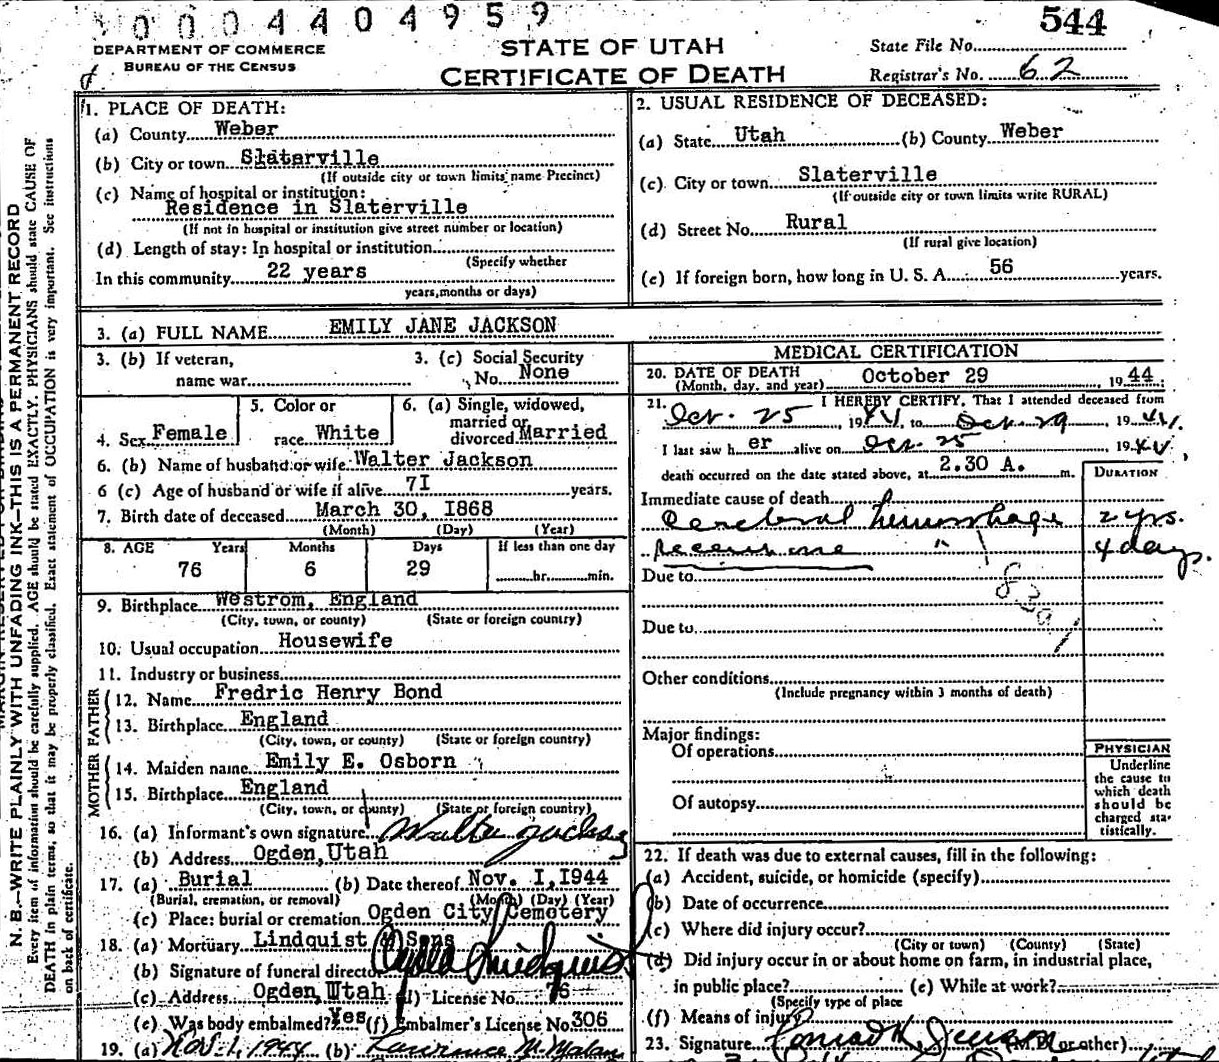 0004404959
544
DEPARTMENT OF COMMERCE
BUREAU OF THE CENSUS
STATE OF UTAH
CERTIFICATE OF DEATH
State File No.
Registrar's No. 62
N. B.—WRITE PLAINLY WITH UNFADING INK—THIS IS A PERMANENT RECORD
Every item of information should be carefully supplied. AGE should be stated EXACTLY. PHYSICIANS should state CAUSE OF
DEATH in plain terms, so that it may be properly classified. Exact statement of OCCUPATION is very important. See instructions
on back of certificate.
1. PLACE OF DEATH:
(a) County Weber
(b) City or town Slaterville
(If outside city or town limits name Precinct)
(c) Name of hospital or institution:
Residence in Slaterville
(If not in hospital or institution give street number or location)
(d) Length of stay: In hospital or institution
(Specify whether
In this community 22 years
years, months or days)
2. USUAL RESIDENCE OF DECEASED:
(a) State Utah (b) County Weber
(c) City or town Slaterville
(If outside city or town limits write RURAL)
(d) Street No. Rural
(If rural give location)
(e) If foreign born, how long in U. S. A. 56 years.
3. (a) FULL NAME EMILY JANE JACKSON
3. (b) If veteran,
name war
3. (c) Social Security
No. None
4. Sex Female
5. Color or
race White
6. (a) Single, widowed,
married or
divorced Married
6. (b) Name of husband or wife Walter Jackson
6 (c) Age of husband or wife if alive 7I years.
7. Birth date of deceased March 30, I868
(Month) (Day) (Year)
8. AGE Years Months Days If less than one day
76 6 29 hr. min.
9. Birthplace Westrom, England
(City, town, or county) (State or foreign country)
10. Usual occupation Housewife
11. Industry or business
FATHER
12. Name Fredric Henry Bond
13. Birthplace England
(City, town, or county) (State or foreign country)
MOTHER
14. Maiden name Emily E. Osborn
15. Birthplace England
(City, town, or county) (State or foreign country)
16. (a) Informant's own signature Walter Jackson
(b) Address Ogden, Utah
17. (a) Burial (b) Date thereof Nov. I, I944
(Burial, cremation, or removal) (Month) (Day) (Year)
(c) Place: burial or cremation Ogden City Cemetery
18. (a) Mortuary Lindquist & Sons
(b) Signature of funeral director Lindquist
(c) Address Ogden, Utah (d) License No. 76
(e) Was body embalmed? Yes (f) Embalmer's License No. 306
19. (a) Nov. 1, 1944 (b) Lawrence M. Malan
MEDICAL CERTIFICATION
20. DATE OF DEATH
(Month, day, and year) October 29, 1944
21. I HEREBY CERTIFY, That I attended deceased from
Oct. 25, 1944, to Oct. 29, 1944.
I last saw her alive on Oct. 25 1944
death occurred on the date stated above, at 2.30 A. m.
DURATION
Immediate cause of death
Cerebral hemorrhage 2 yrs.
Recent one " 4 days.
Due to
83a1
Due to
Other conditions
(Include pregnancy within 3 months of death)
Major findings:
Of operations
Of autopsy
PHYSICIAN
Underline
the cause to
which death
should be
charged sta-
tistically.
22. If death was due to external causes, fill in the following:
(a) Accident, suicide, or homicide (specify)
(b) Date of occurrence
(c) Where did injury occur?
(City or town) (County) (State)
(d) Did injury occur in or about home on farm, in industrial place,
in public place? (e) While at work?
(Specify type of place
(f) Means of injury
23. Signature Conrad H. Jenson (M.D. or other)